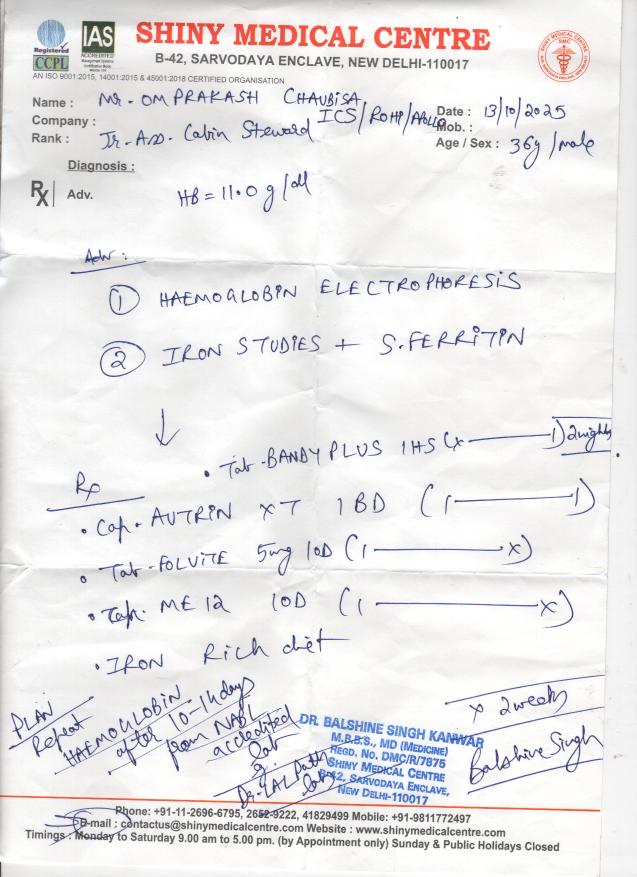 Registered
CCPL
IAS
ACCREDITED
SHINY MEDICAL CENTRE
B-42, SARVODAYA ENCLAVE, NEW DELHI-110017
AN ISO 9001:2015, 14001:2015 & 45001:2018 CERTIFIED ORGANISATION
Name : Mr. OMPRAKASH CHAUBISA
Company : ICS/ROHP/APOLLO
Date : 13/10/2025
Mob. :
Rank : Jr. Ass. Cabin Steward
Age / Sex : 36y/male
Diagnosis :
Rx Adv.
HB = 11.0 g/dl
Adv :
① HAEMOGLOBIN ELECTROPHORESIS
② IRON STUDIES + S.FERRITIN
Rx
• Tab. BANDY PLUS 1HS (x — 1) 2 nights
• Cap. AUTRIN XT 1BD (1 — 1)
• Tab. FOLVITE 5mg 1OD (1 — x)
• ME 12 1OD (1 — x)
• IRON Rich diet
PLAN
Repeat
HAEMOGLOBIN
after 10-14 days
from NABL
accredited
Lab
Dr. LAL Path
Lab
x 2 weeks
Balshine Singh
DR. BALSHINE SINGH KANWAR
M.B.B.S., MD (MEDICINE)
REGD. NO. DMC/R/7875
SHINY MEDICAL CENTRE
B-42, SARVODAYA ENCLAVE,
NEW DELHI-110017
Phone: +91-11-2696-6795, 2652-9222, 41829499 Mobile: +91-9811772497
E-mail : contactus@shinymedicalcentre.com Website : www.shinymedicalcentre.com
Timings : Monday to Saturday 9.00 am to 5.00 pm. (by Appointment only) Sunday & Public Holidays Closed